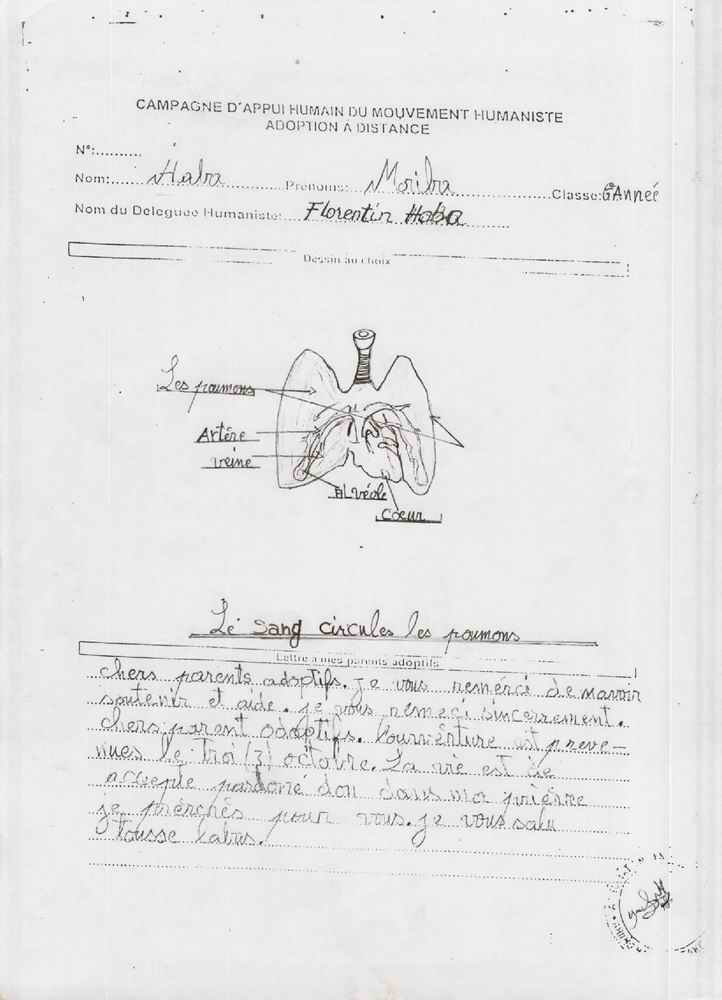 CAMPAGNE D'APPUI HUMAIN DU MOUVEMENT HUMANISTE
ADOPTION A DISTANCE
N°:..........
Nom: Haba Prénoms: Moriba Classe: 6e Année
Nom du Deleguee Humaniste: Florentin Haba
Dessin au choix
Les poumons
Artére
veine
ALvéole
Coeur
Le sang circules les poumons
Lettre a mes parents adoptifs
chers parents adoptifs. je vous remerci de mavoir
soutenir et aide. je vous remeci sincerrement.
Chers parent adoptifs. l'ourvérture est preve-
nues le troi (3) octobre. La vie est de
accepte pardoné don dans ma priérre
je pherches pour vous. je vous salu